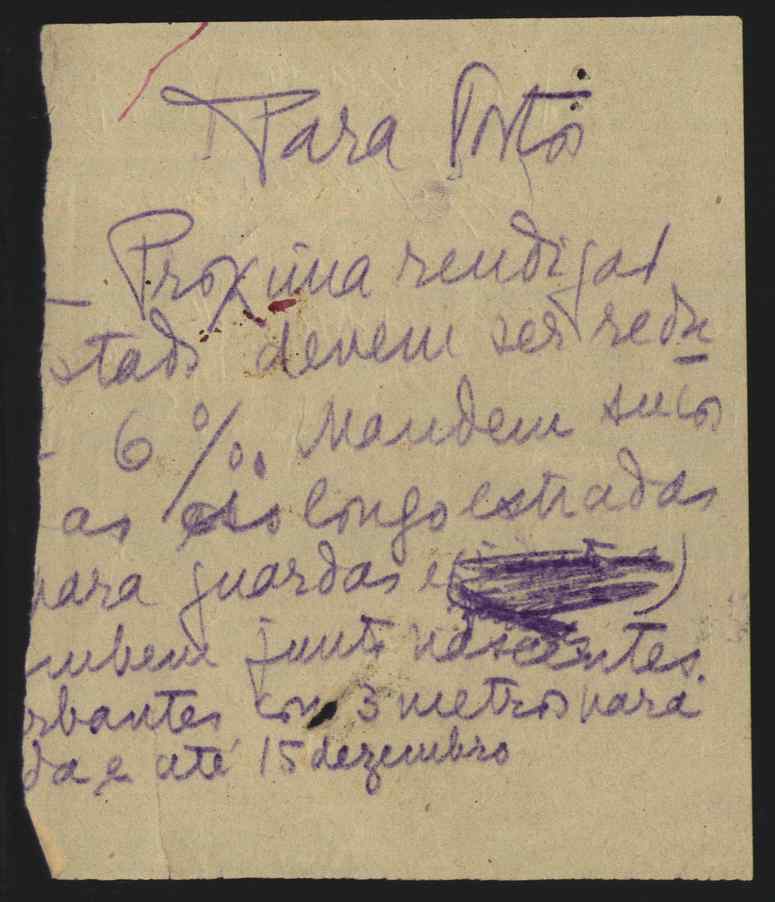 Para Postos
Proxima rendições
stado devem ser redu
6%. Mandem
as ao longo estradas
para guardas e
mbem junto nascentes.
rbantes com 3 metros para
da e até 15 dezembro